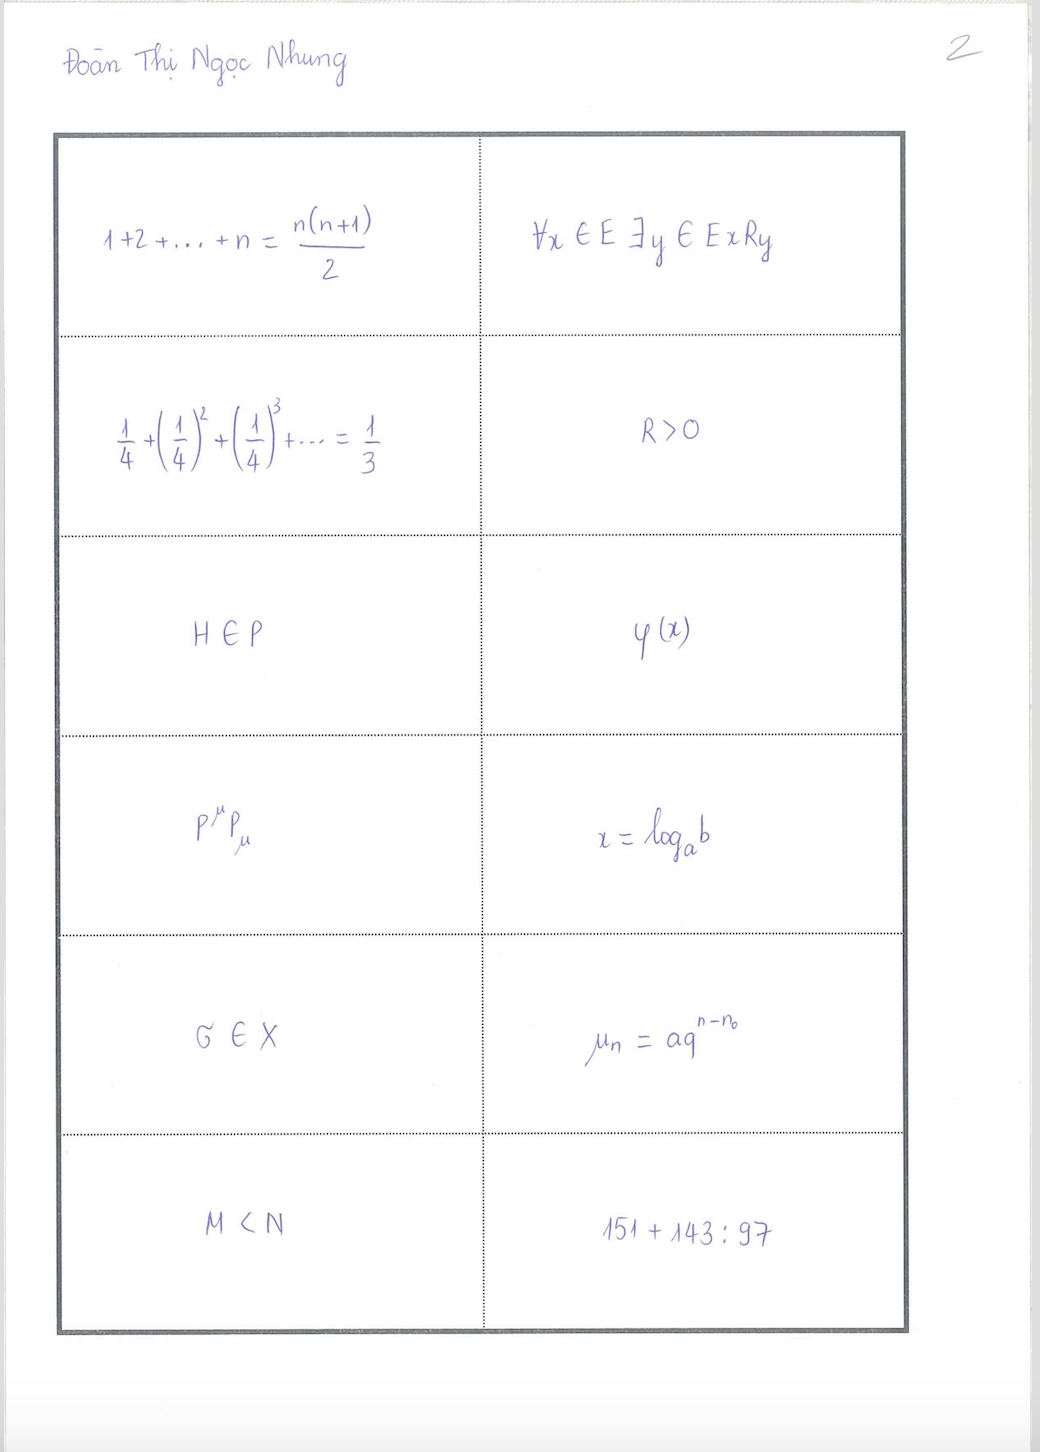 Đoàn Thị Ngọc Nhung
2
1+2+...+n = n(n+1)/2
∀x ∈ E ∃y ∈ E xRy
1/4 + (1/4)² + (1/4)³ + ... = 1/3
R > 0
H ∈ P
φ(x)
P^μ P_μ
x = log_a b
σ ∈ X
μ_n = aq^(n-n₀)
M < N
151 + 143 : 97